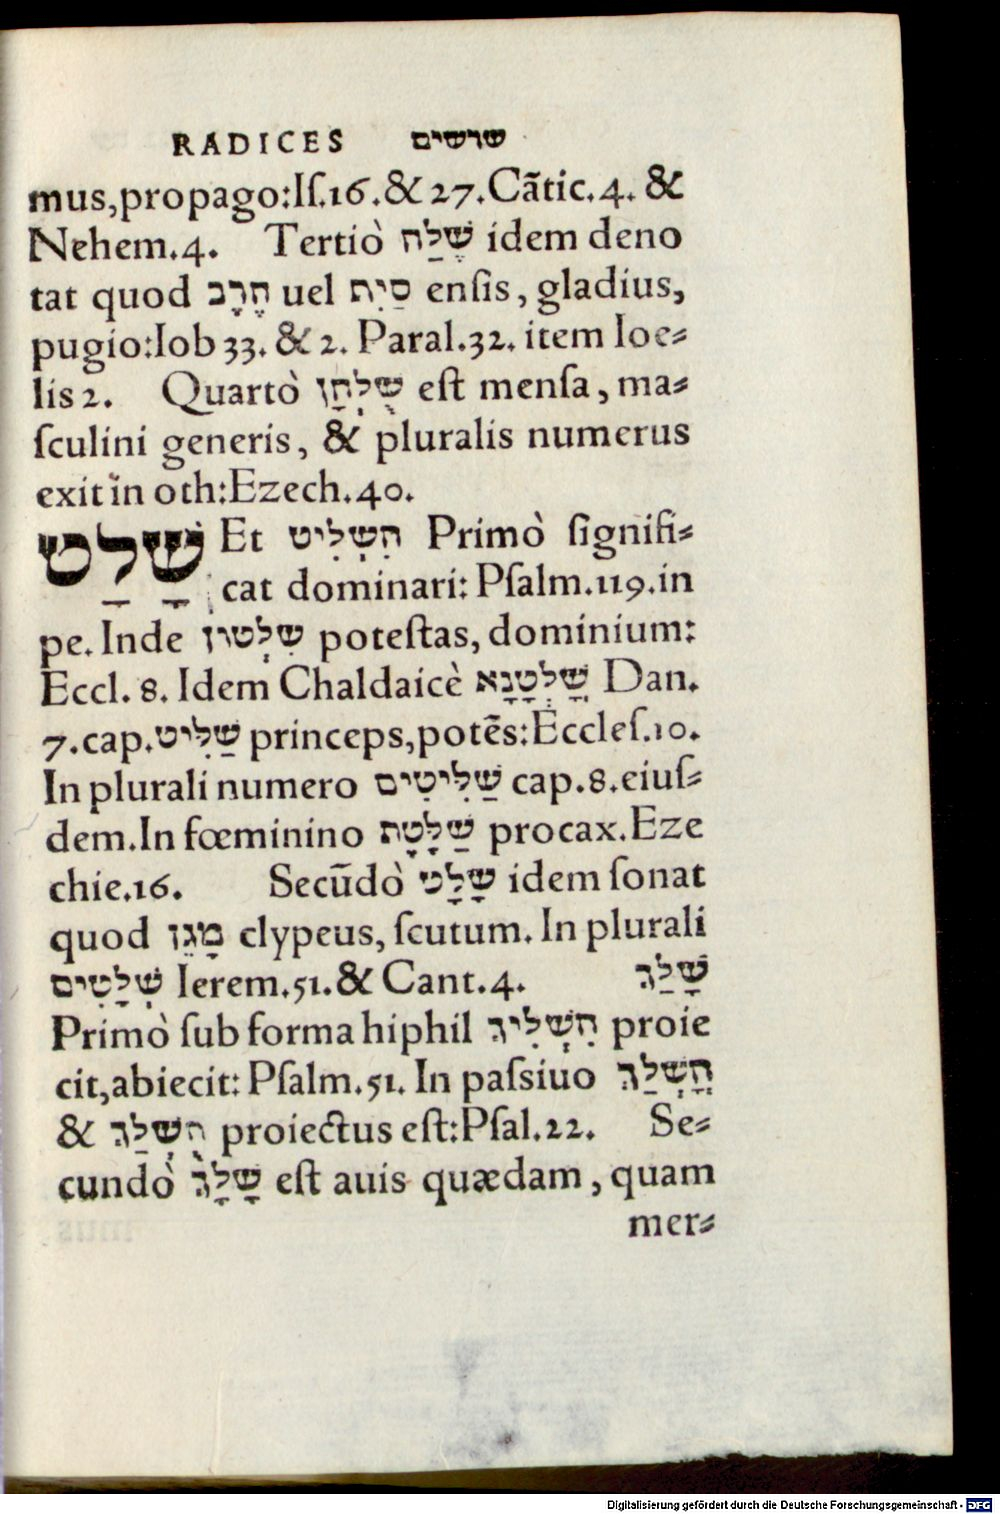 RADICES שרשים
mus,propago:Iſ.16.&27.Cãtic.4. &
Nehem.4. Tertiò שֶׁלַח idem deno
tat quod חֶרָב uel סַיִת enſis, gladius,
pugio:Iob 33. & 2. Paral.32. item Ioe-
lis 2. Quartò שֻׁלְחָן eſt menſa, ma-
ſculini generis, & pluralis numerus
exit in oth:Ezech.40.
שָׁלַט Et הִשְׁלִיט Primò ſignifi-
cat dominari: Pſalm.119.in
pe. Inde שִׁלְטרון poteſtas, dominium:
Eccl. 8. Idem Chaldaicè שָׁלְטָנָא Dan.
7.cap.שַׁלִיט princeps,potẽs:Eccleſ.10.
In plurali numero שַׁלִיטִים cap.8.eiuſ-
dem.In fœminino שַׁלָטָת procax.Eze
chie.16. Secũdò שָׁלָט idem ſonat
quod מָגֵן clypeus, ſcutum. In plurali
שְׁלָטִים Ierem.51.& Cant.4. שָׁלַךְ
Primò ſub forma hiphil הִשְׁלִיךְ proie
cit,abiecit: Pſalm.51. In paſsiuo הֳשְׁלַךְ
& הֻשְׁלַךְ proiectus eſt:Pſal.22. Se-
cundò שָׁלָךְ eſt auis quædam, quam
mer-
Digitalisierung gefördert durch die Deutsche Forschungsgemeinschaft - DFG